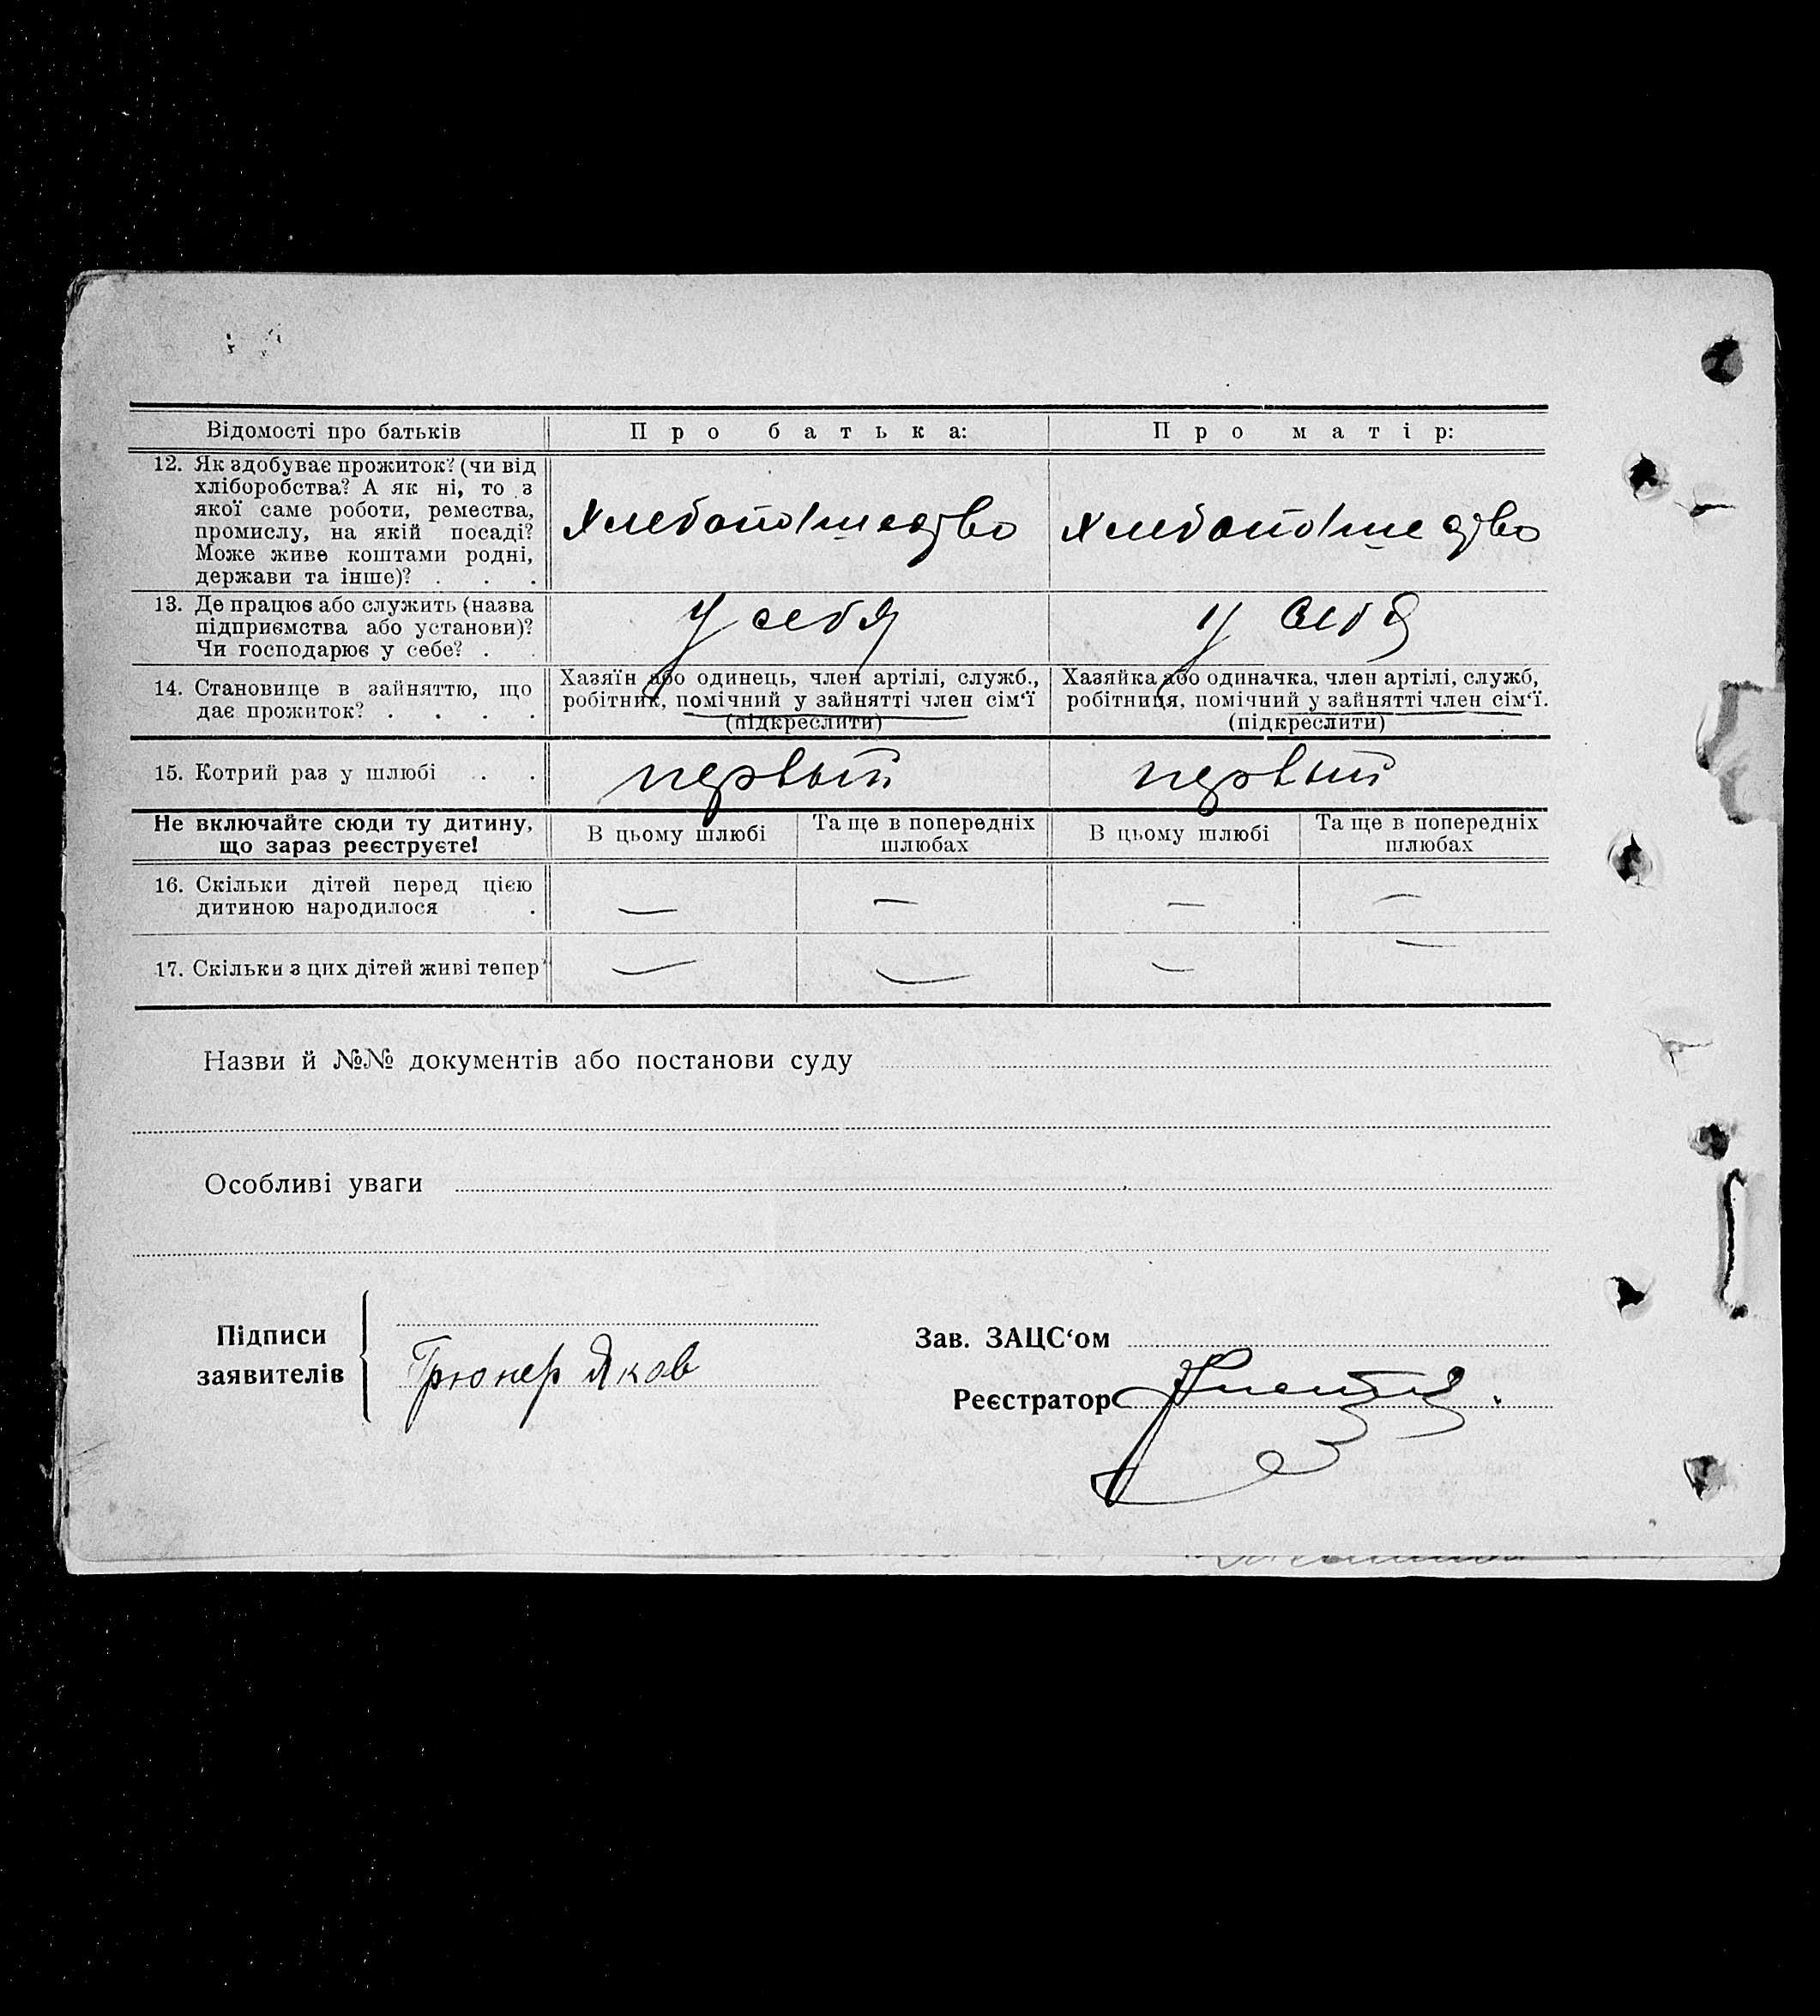 Відомості про батьків
Про батька:
Про матір:
12. Як здобуває прожиток? (чи від
хліборобства? А як ні, то з
якої саме роботи, ремества,
промислу, на якій посаді?
Може живе коштами родні,
держави та інше)? . . .
Хлебопашество
Хлебопашество
13. Де працює або служить (назва
підприємства або установи)?
Чи господарює у себе? . .
у себя
у себя
14. Становище в зайняттю, що
дає прожиток? . . . .
Хазяїн або одинець, член артілі, служб.,
робітник, помічний у зайнятті член сім‘ї
(підкреслити)
Хазяйка або одиначка, член артілі, служб,
робітниця, помічний у зайнятті член сім‘ї.
(підкреслити)
15. Котрий раз у шлюбі . .
первый
первый
Не включайте сюди ту дитину,
що зараз реєструєте!
В цьому шлюбі
Та ще в попередніх
шлюбах
В цьому шлюбі
Та ще в попередніх
шлюбах
16. Скільки дітей перед цією
дитиною народилося .
— — — —
17. Скільки з цих дітей живі тепер
— — — —
Назви й №№ документів або постанови суду
Особливі уваги
Підписи
заявителів
Грюнер Яков
Зав. ЗАЦС‘ом
Реєстратор